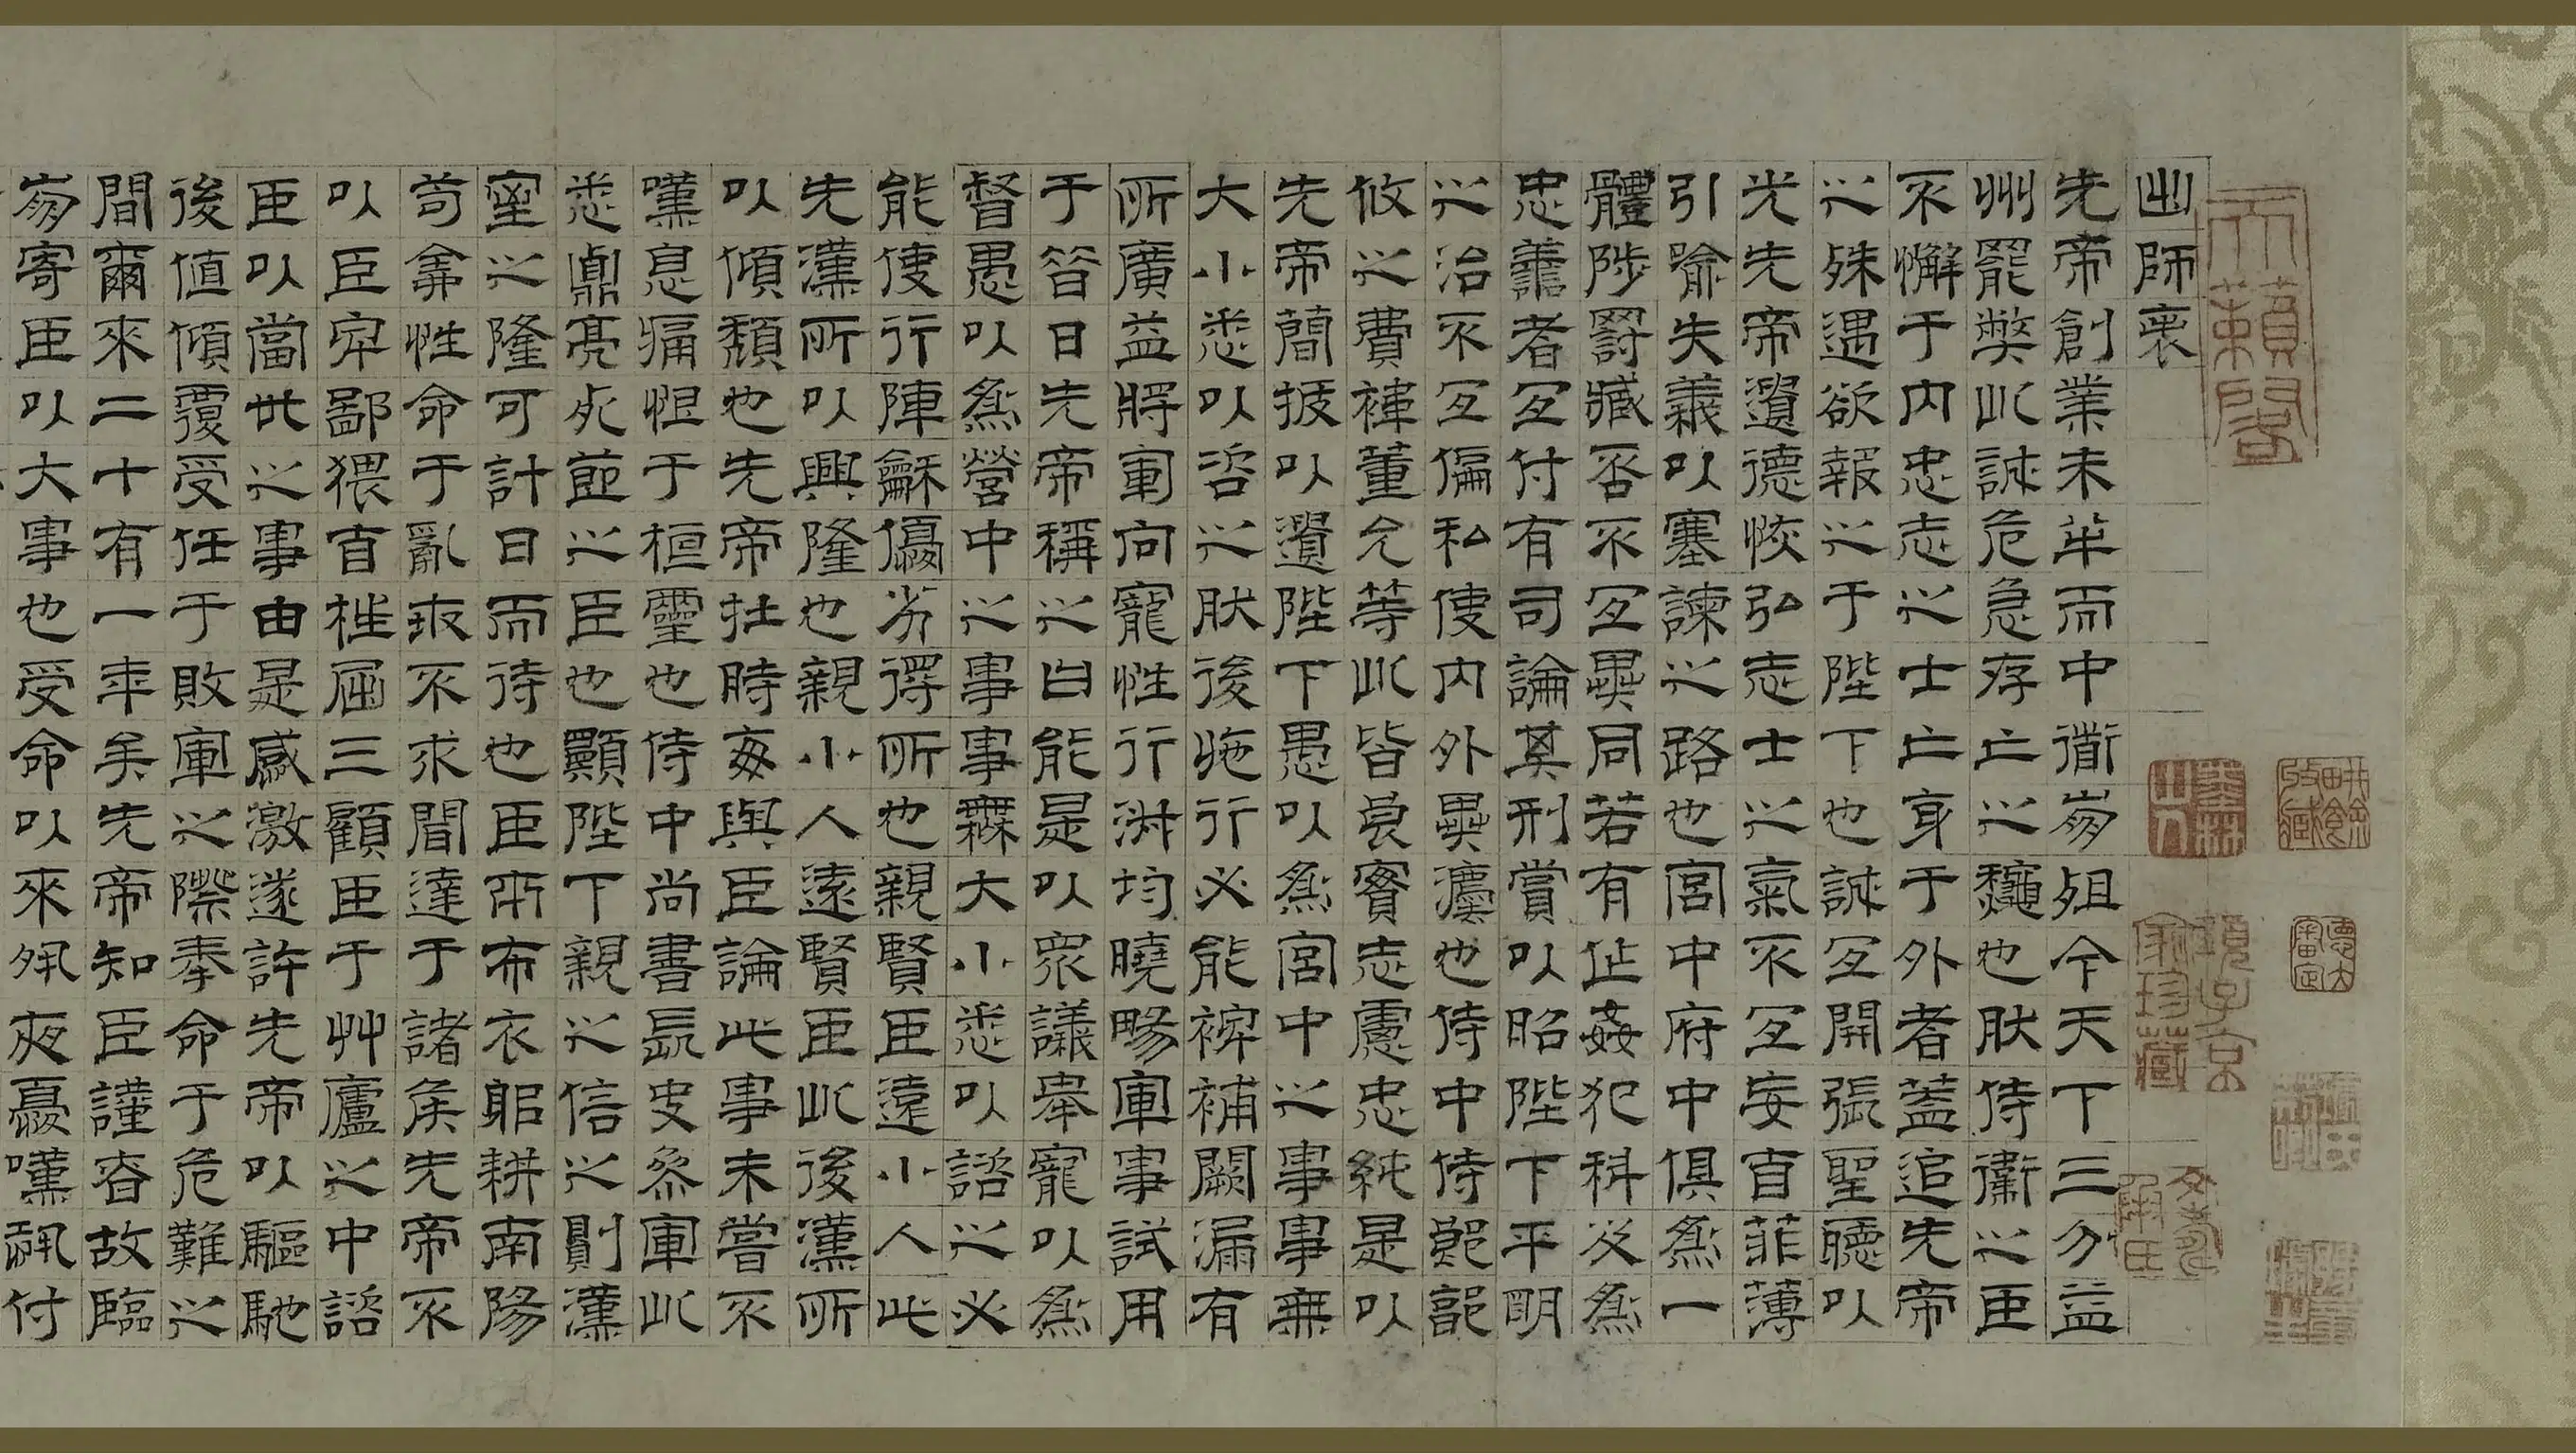 天籟閣
墨林山人
項子京家珍藏
出師表
先帝創業未半而中道崩殂今天下三分益
州罷弊此誠危急存亡之龝也然侍衛之臣
不懈于内忠志之士亡身于外者蓋追先帝
之殊遇欲報之于陛下也誠宜開張聖聽以
光先帝遺德恢弘志士之氣不宜妄自菲薄
引喻失義以塞諫之路也宮中府中俱爲一
體陟罰臧否不宜異同若有作姦犯科及爲
忠善者宜付有司論其刑賞以昭陛下平明
之治不宜偏私使内外異灋也侍中侍郎郭
攸之費褘董允等此皆良實志慮忠純是以
先帝簡拔以遺陛下愚以爲宮中之事事無
大小悉以咨之然後施行必能裨補闕漏有
所廣益將軍向寵性行淑均曉暢軍事試用
于昔日先帝稱之曰能是以衆議舉寵以爲
督愚以爲營中之事事無大小悉以諮之必
能使行陣龢優劣得所也親賢臣遠小人此
先漢所以興隆也親小人遠賢臣此後漢所
以傾頹也先帝在時每與臣論此事未嘗不
嘆息痛恨于桓靈也侍中尚書長史參軍此
悉貞亮死節之臣也願陛下親之信之則漢
室之隆可計日而待也臣本布衣躬耕南陽
苟全性命于亂世不求聞達于諸侯先帝不
以臣卑鄙猥自枉屈三顧臣于艸廬之中諮
臣以當世之事由是感激遂許先帝以驅馳
後值傾覆受任于敗軍之際奉命于危難之
間爾來二十有一年矣先帝知臣謹昚故臨
崩寄臣以大事也受命以來夙夜憂嘆恐付